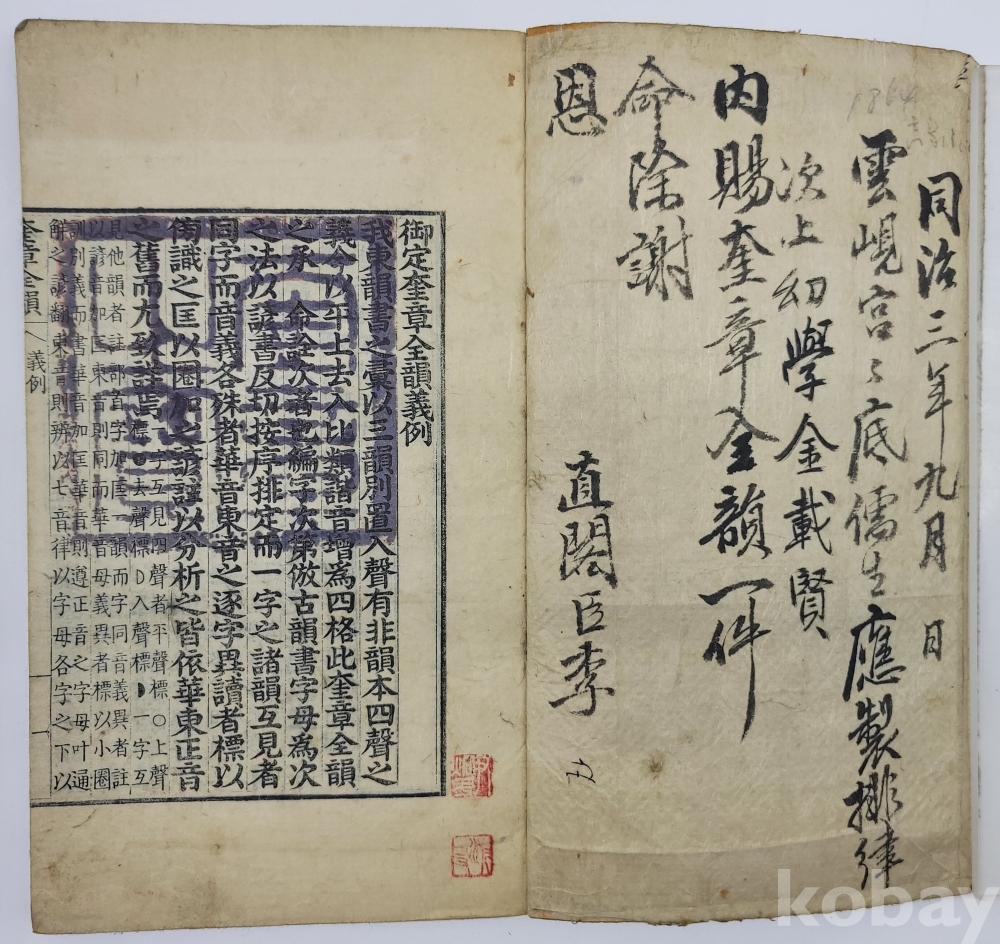 同治三年九月 日
雲峴宮〻底儒生應製排律
次上幼學金載賢
內賜奎章全韻一件
命除謝
恩
直閣臣李
御定奎章全韻義例
我東韻書之彙以三韻別置入聲有非韻本四聲之
義今以平上去入比類諧音增爲四格此奎章全韻
之承 命詮次者也編字次第倣古韻書字母爲次
之法以諺書反切按序排定而一字之諸韻互見者
同字而音義各殊者華音東音之逐字異讀者標以
傍識之匡以圈加之諺謹以分析之皆依華東正音
之舊而尤致詳焉
一字互見四聲者平聲標○上聲
標●去聲標D入聲標◗一字互
見他韻者註部首字加匡一韻而字同音義異者註
以諺音加匡東音則同而華音母義異者標以小圈
訓別義而書華音加匡華音則遵正音之字母叶通
解之諺翻東音則辨以七音律以字母各字之下以
奎章全韻 義例 一
kobay